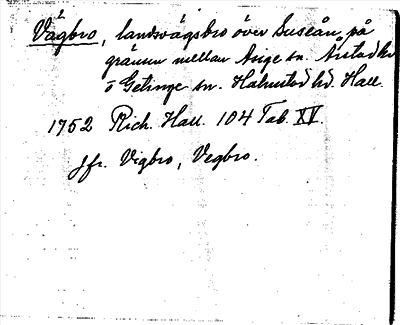 Vågbro, landsvägsbro över Suseån på
gränsen mellan Asige sn. Årstad hd
o Getinge sn. Halmstad hd. Hall.
1752 Rich. Hall. 104 Tab. XV.
Jfr. Vigbro, Vegbro.